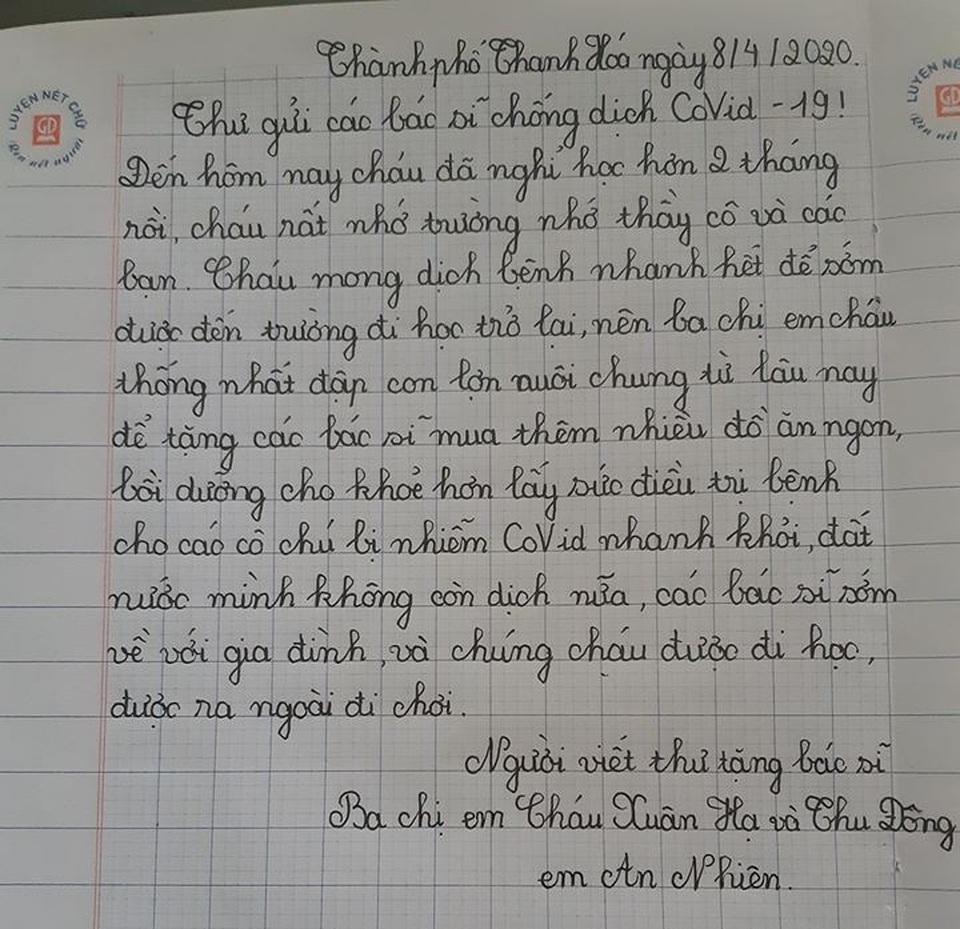 Thành phố Thanh Hoá ngày 8/4/2020.
Thư gửi các bác sĩ chống dịch CoVid - 19!
Đến hôm nay cháu đã nghỉ học hơn 2 tháng
rồi, cháu rất nhớ trường nhớ thầy cô và các
bạn. Cháu mong dịch bệnh nhanh hết để sớm
được đến trường đi học trở lại, nên ba chị em cháu
thống nhất đập con lợn nuôi chung từ lâu nay
để tặng các bác sĩ mua thêm nhiều đồ ăn ngon,
bồi dưỡng cho khoẻ hơn lấy sức điều trị bệnh
cho các cô chú bị nhiễm CoVid nhanh khỏi, đất
nước mình không còn dịch nữa, các bác sĩ sớm
về với gia đình, và chúng cháu được đi học,
được ra ngoài đi chơi.
Người viết thư tặng bác sĩ
Ba chị em Cháu Xuân Hạ và Thu Đông
em An Nhiên.
LUYỆN NÉT CHỮ
GD
Rèn nết người
LUYỆN NÉ
GD
Rèn nết